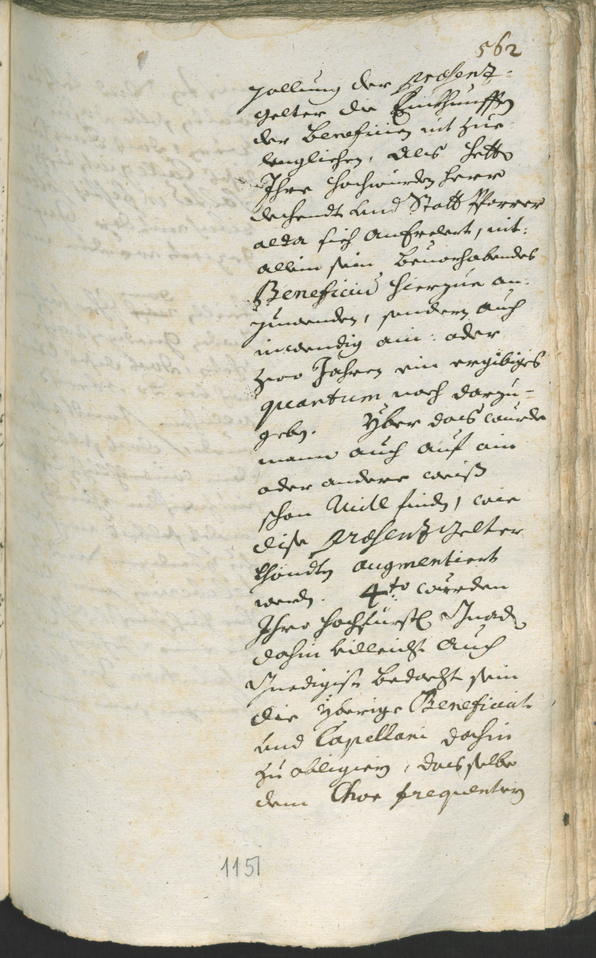 562
zallung der præsenz-
gelter die Einkhunfften
der Beneficien nit zue-
lenglichen, Als hette
Ihre hochwürden Herr
Dechandt und Statt Pfarrer
alda sich anerbiert, nit:
allein sein beuorhabendes
Beneficium hierzue an-
zuwenden, sondern auch
inwendig ain: oder
zwo Jahren ein ergibiges
quantum noch darzu-
geben. Yber dais wurde
mann auch auf ain
oder andere weiß
schon Mitl finden, wie
dise præsenz gelter
khöndten augmentiert
werden. 4to wurden
Ihro hochfürstl. Gnaden
dahin villeicht auch
Gnedigist bedacht sein
die Yberige Beneficiat.
und Capellani dahin
zu obligiern, dais selbe
dem Chor frequentirn
1151